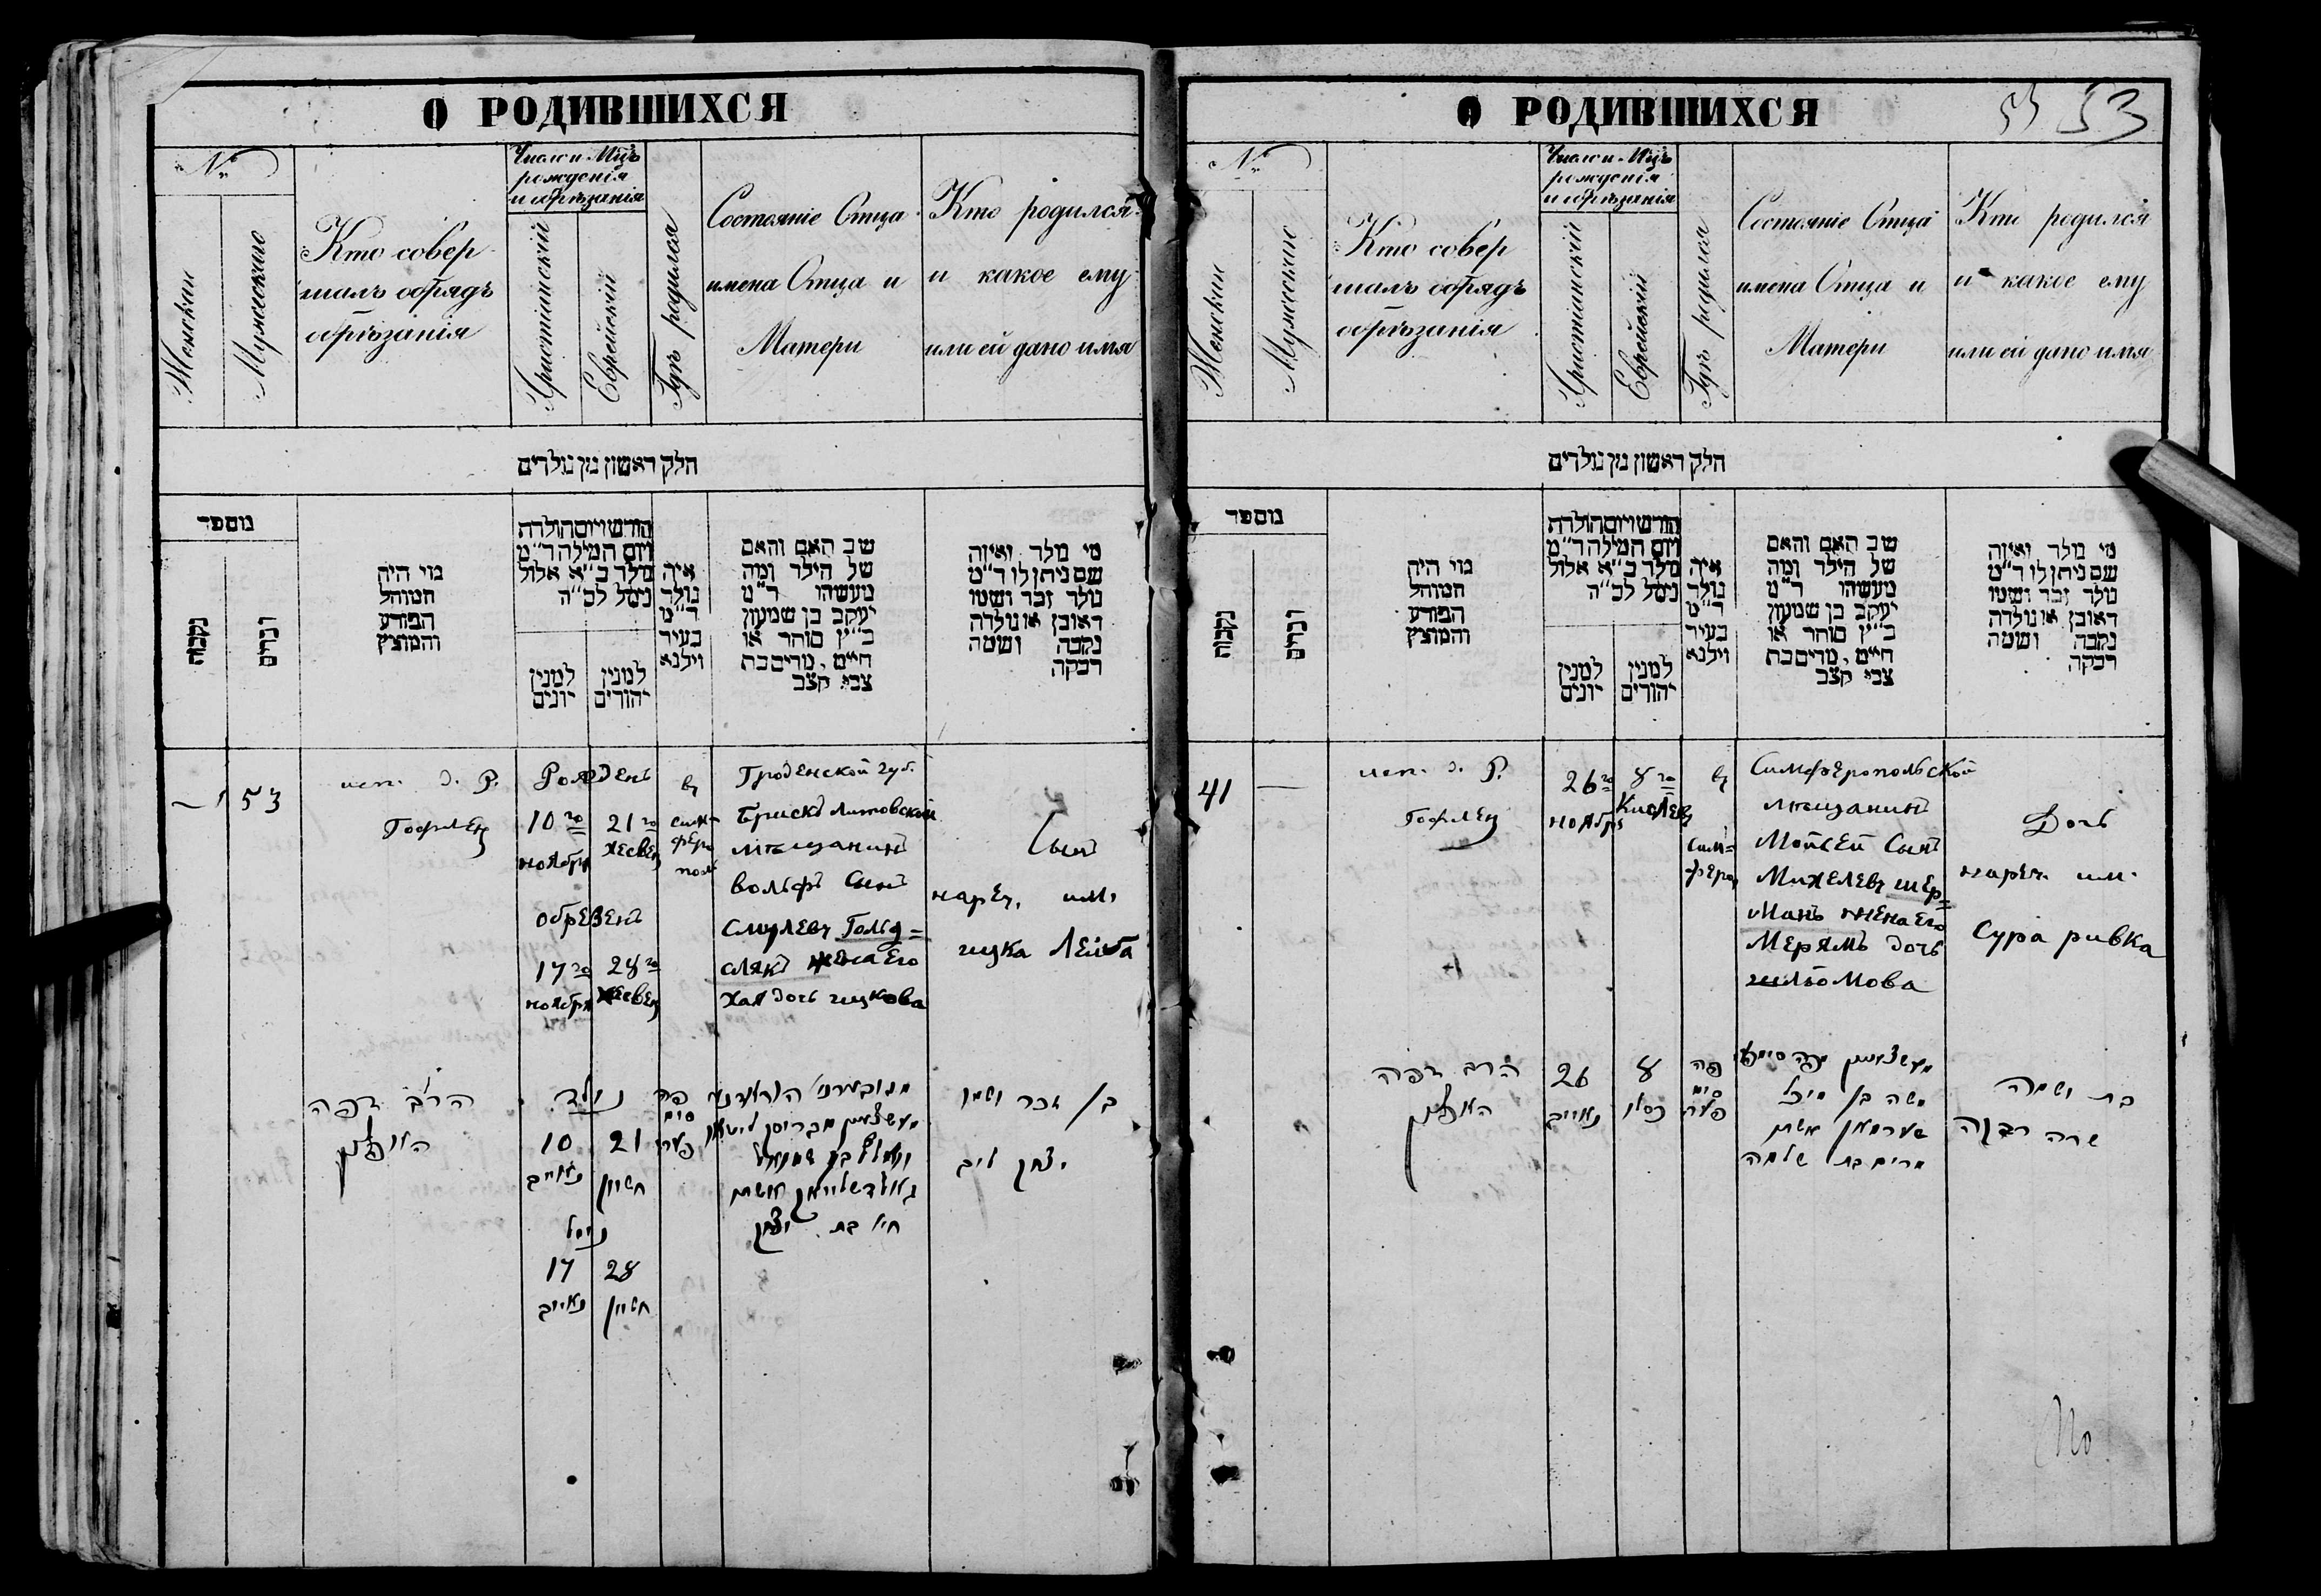 О РОДИВШИХСЯ
№
Женскии
Мужескию
Кто совер
шалъ обрядъ
обрѣзанія
Число и Мцъ
рожденія
и обрѣзанія
Христіанскій
Еврейскій
Гдѣ родился
Состояніе Отца
имена Отца и
Матери
Кто родился
и какое ему
или ей дано имя
חלק ראשון מן נולדים
מספר
נקבות
זכרים
מי היה
המוהל
הפורע
והמוצץ
חודש ויום הולדת
ויום המילה ד״מ
נולד כ״א אלול
נימל לכ״ה
למנין
יונים
למנין
יהודים
איה
נולד
ד״מ
בעיר
וילנא
שב האם והאם
של הילד ומה
מעשהו ד״מ
יעקב בן שמעון
כ״ץ סוחר או
חיים, מרים בת
צבי קצב
מי נולד ואיזה
שם ניתן לו ד״מ
נולד זכר ושמו
ראובן או נולדה
נקבה ושמה
רבקה
53
исп. д. Р.
Гофлец
Рожденъ
10го
ноября
21го
хесвец
обрезенъ
17го
ноября
28го
хесвец
в
сим-
феро
пол
Гроденской губ.
Брискъ Литовской
мѣщанинъ
Вольфъ Сынъ
Смулевъ Гольд=
слякъ жена Его
Хая дочь ицкова
Сынъ
нареч. им.
ицка Лейба
הרב דפה
נולד
10 21
נאוויב חשוון
נימול
17 28
נאוויב חשוון
פה
סים
פער
חי׳ בת יצחק
בן זכר ושמו
יצחק ליב
О РОДИВШИХСЯ
53
№
Женскии
Мужескию
Кто совер
шалъ обрядъ
обрѣзанія
Число и Мцъ
рожденія
и обрѣзанія
Христіанскій
Еврейскій
Гдѣ родился
Состояніе Отца
имена Отца и
Матери
Кто родился
и какое ему
или ей дано имя
חלק ראשון מן נולדים
מספר
נקבות
זכרים
מי היה
המוהל
הפורע
והמוצץ
חודש ויום הולדת
ויום המילה ד״מ
נולד כ״א אלול
נימל לכ״ה
למנין
יונים
למנין
יהודים
איה
נולד
ד״מ
בעיר
וילנא
שב האם והאם
של הילד ומה
מעשהו ד״מ
יעקב בן שמעון
כ״ץ סוחר או
חיים, מרים בת
צבי קצב
מי נולד ואיזה
שם ניתן לו ד״מ
נולד זכר ושמו
ראובן או נולדה
נקבה ושמה
רבקה
41
исп. д. Р.
Гофлец
26го
ноября
8го
Кислев
в
сим=
фероп
Симферопольской
мѣщанинъ
Мойсей Сынъ
Михелевъ шер=
манъ жена Его
Мерямъ дочь
шльомова
Дочь
нареч. им.
Сура ривка
הרב דפה
26 8
נאוויב כסלו
פה
סים
פער
משה בן מיכל
שערמאן אשתו
מרים בת שלמה
בת ושמה
שרה רבקה